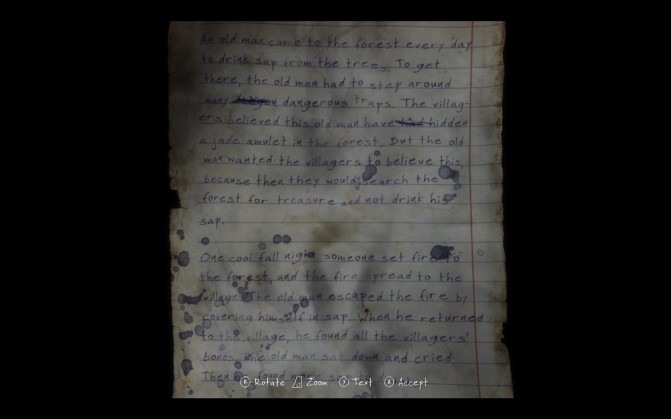 An old man came to the forest every day
to drink sap from the trees. To get
there, the old man had to step around
many dangerous traps. The villag-
ers believed this old man have had hidden
a jade amulet in the forest. But the old
man wanted the villagers to believe this,
because then they would search the
forest for treasure and not drink his
sap.
One cool fall night someone set fire to
the forest, and the fire spread to the
village. The old man escaped the fire by
covering himself in sap. When he returned
to the village, he found all the villagers'
bones. The old man sat down and cried.
Then
Rotate Zoom Text Accept